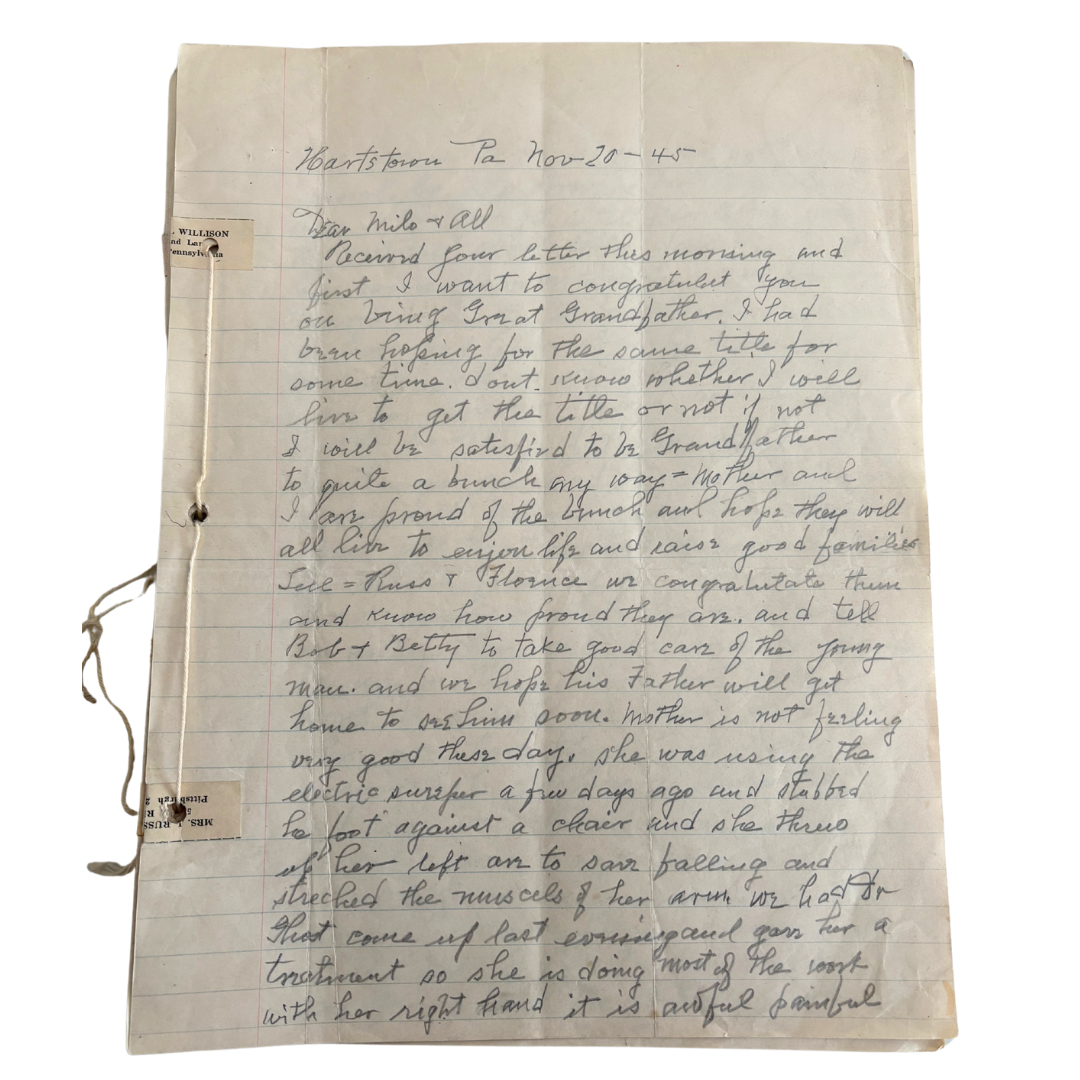 Hartstown Pa Nov 20 - 45
Dear Milo & All
Received your letter this morning and
first I want to congratulet you
on being Great Grandfather. I had
been hoping for the same title for
some time. dont know whether I will
live to get the title or not if not
I will be satisfied to be Grandfather
to quite a bunch any way = Mother and
I are proud of the bunch and hope they will
all live to enjoy life and raise good families
Tell = Russ & Florence we congralutate them
and know how proud they are. and tell
Bob & Betty to take good care of the young
man. and we hope his Father will get
home to see him soon. Mother is not feeling
very good these day. she was using the
electric sweeper a few days ago and stubbed
he foot against a chair and she threw
up her left are to save falling and
streched the muscels of her arm. we had Dr
come up last evening and gave her a
treatment so she is doing most of the work
with her right hand it is awful painful
. WILLISON
nd Lan
ennsylvania
MRS. J. RUSS
5 R
Pittsburgh 2